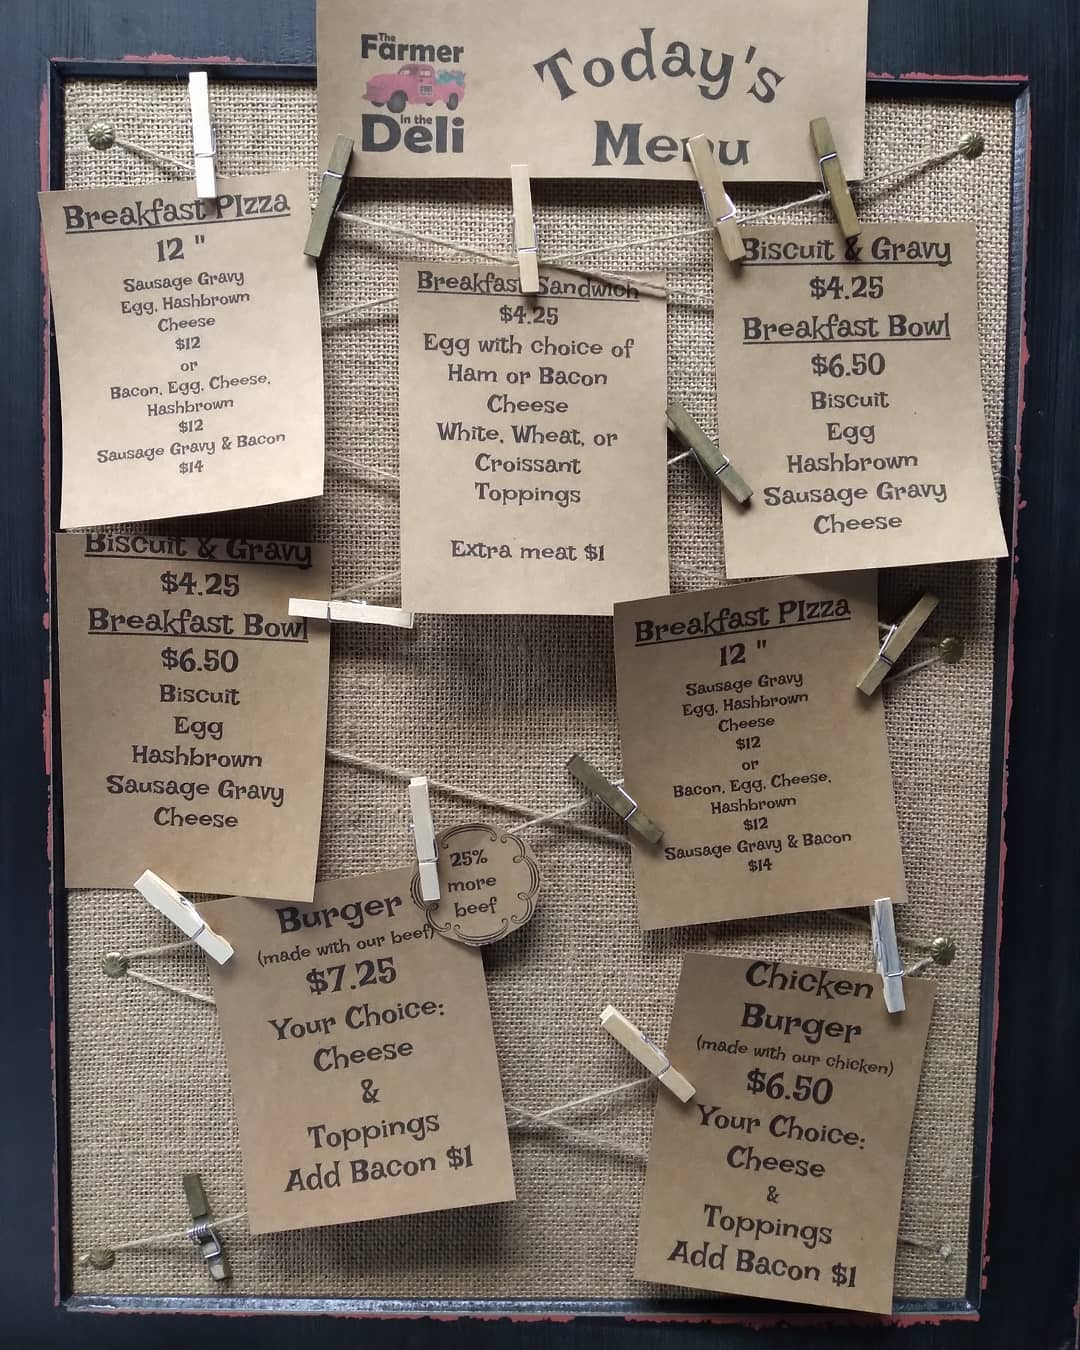 The
Farmer
in the
Deli
Today's
Menu
Breakfast PIzza
12 "
Sausage Gravy
Egg, Hashbrown
Cheese
$12
or
Bacon, Egg, Cheese,
Hashbrown
$12
Sausage Gravy & Bacon
$14
Breakfast Sandwich
$4.25
Egg with choice of
Ham or Bacon
Cheese
White, Wheat, or
Croissant
Toppings
Extra meat $1
Biscuit & Gravy
$4.25
Breakfast Bowl
$6.50
Biscuit
Egg
Hashbrown
Sausage Gravy
Cheese
Biscuit & Gravy
$4.25
Breakfast Bowl
$6.50
Biscuit
Egg
Hashbrown
Sausage Gravy
Cheese
Breakfast PIzza
12 "
Sausage Gravy
Egg, Hashbrown
Cheese
$12
or
Bacon, Egg, Cheese,
Hashbrown
$12
Sausage Gravy & Bacon
$14
25%
more
beef
Burger
(made with our beef)
$7.25
Your Choice:
Cheese
&
Toppings
Add Bacon $1
Chicken
Burger
(made with our chicken)
$6.50
Your Choice:
Cheese
&
Toppings
Add Bacon $1